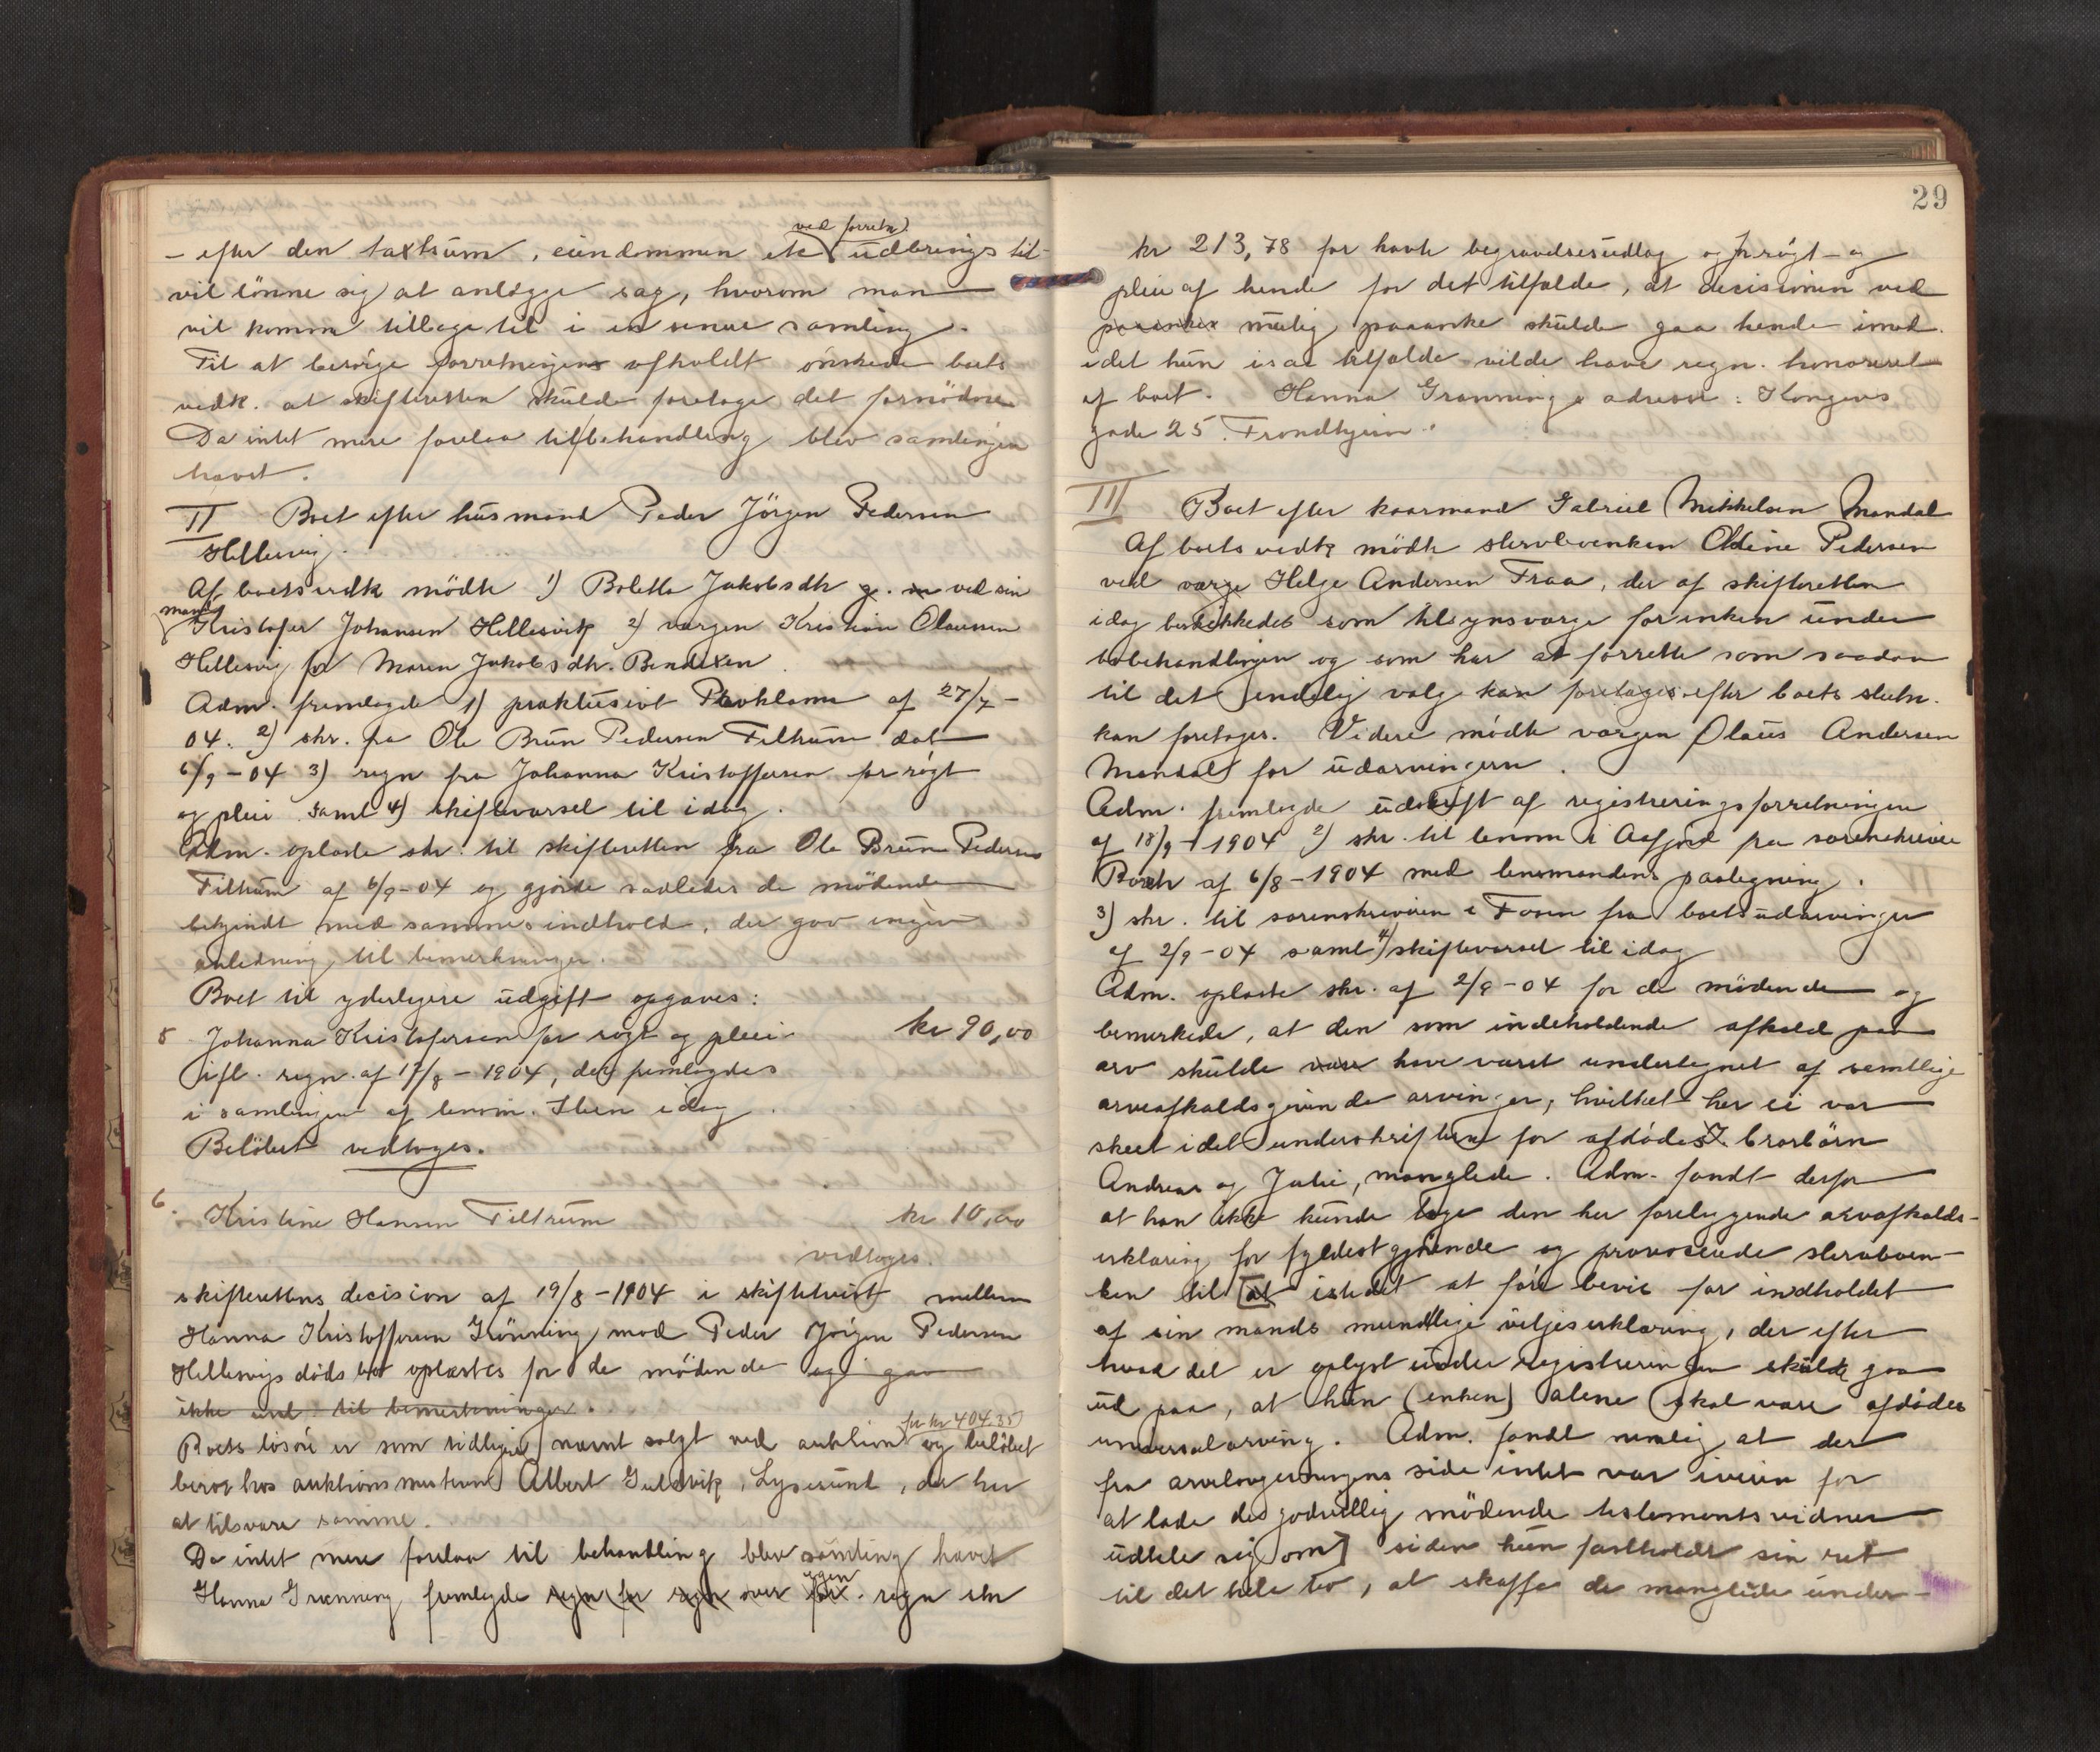 ved forretn.
– efter den taxtsum, eiendommen etc udbringes til
vil lönne sig at anlægge sag, hvorom man
vil komme tilbage til i en senere samling.
Til at besörge forretningen afholdt önskede boets
vedk. at skifteretten skulde foretage det fornödne
Da intet mere forelaa til behandling blev samlingen
hævet.
II Boet efter husmand Peder Jörgen Pedersen
Hellesvig.
Af boets vedk mödte 1) Boletta Jakobsdtr g. m ved sin
mand
Kristofer Johansen Hellesvik 2) værgen Kristian Olaussen
Hellesvig for Maren Jakobsdtr. Bendixen.
Adm. fremlagde 1) præklusivt Proklama af 27/7 –
04. 2) skr. fra Ole Brun Pedersen Feltrum dat
6/9 – 04 3) regn fra Johanna Kristoffersen for rögt
og pleie samt 4) skiftevarsel til idag.
Adm. oplæste skr. til skifteretten fra Ole Brun Pedersen
Filtrum af 6/9 – 04 og gjorde saaledes de mödende
bekjendt med sammes indhold, der gav ingen
anledning til bemerkninger.
Boet til yderligere udgift opgaves:
5 Johanna Kristofersen for rögt og pleie kr 90,00
ifl. regn. af 17/8 – 1904, der fremlagdes
i samlingen af lensm. Steen idag.
Belöbet vedtoges.
6. Kristine Hansen Filtrum kr 10,00
vedtoges.
skifterettens decision af 19/8 – 1904 i skiftetvist mellem
Hanna Kristoffersen Grönning mod Peder Jörgen Pedersen
Hellesvigs dödsbo oplæstes for de mödende og gav
ikke anl. til bemerkninger.
for kr 404,35
Boets lösöre er som tidligere nævnt solgt ved auktion og belöbet
beror hos auktionsmesteren Albert Guldvik, Lysesund, der har
at tilsvare samme.
Da intet mere forelaa til behandling blev samling hævet
igjen
Hanna Grænning fremlagde regn for regn over for. regn stor
29
kr 213,78 for havte begravelsesudlæg og for rögt – og
pleie af hende for det tilfælde, at decisionen ved
paaanken mulig paaanke skulde gaa hende imod.
idet hun i saa tilfælde vilde have regn. honoreret
af boet. Hanna Grænnings adresse: Kongens
gade 25. Trondhjem.
III Boet efter kaarmand Gabriel Mikkelsen Mandal
Af boets vedk mödte stervboenken Oldine Pedersen
ved værge Helge Andersen Fraa, der af skifteretten
idag beskikkedes som tilsynsværge for enken under
bobehandlingen og som har at forrette som saadan
til det endelig valg kan foretages efter boets slutn.
kan foretages. Videre mödte værgen Olaus Andersen
Mandal for udarvingerne.
Adm. fremlagde udskrift af registreringsforretningen
af 18/9 – 1904 2) skr. til lensm i Aafjord fra sorenskriver
Roch af 6/8 – 1904 med lensmandens paategning.
3) skr. til sorenskriveren i Fosen fra boets udarvinger
af 2/9 – 04 samt 4) skiftevarsel til idag
Adm. oplæste skr. af 2/9 – 04 for de mödende og
bemerkede, at den som indeholdende afkald paa
arv skulde være have været undertegnet af samtlige
arveafkaldsgivende arvinger, hvilket her ei var
skeet idet underskriften for afdödes brorbörn
Andreas og Julie, manglede. Adm. fandt derfor
at han ikke kunde tage den her foreliggende arveafkalds-
erklæring for fyldestgjörende og provoserede stervboen-
ken til at istedet at före bevis for indholdet
af sin mands mundtlige viljeserklæring, der efter
hvad det er oplyst under registreringen skulde gaa
ud paa, at hun (enken) alene skal være afdödes
universalarving. Adm. fandt nemlig at der
fra arvelovgivningens side intet var iveien for
at lade de godvillig mödende testamentsvidner
udtale sig om] siden hun fastholdt sin ret
til det hele bo, at skaffe de manglede under-